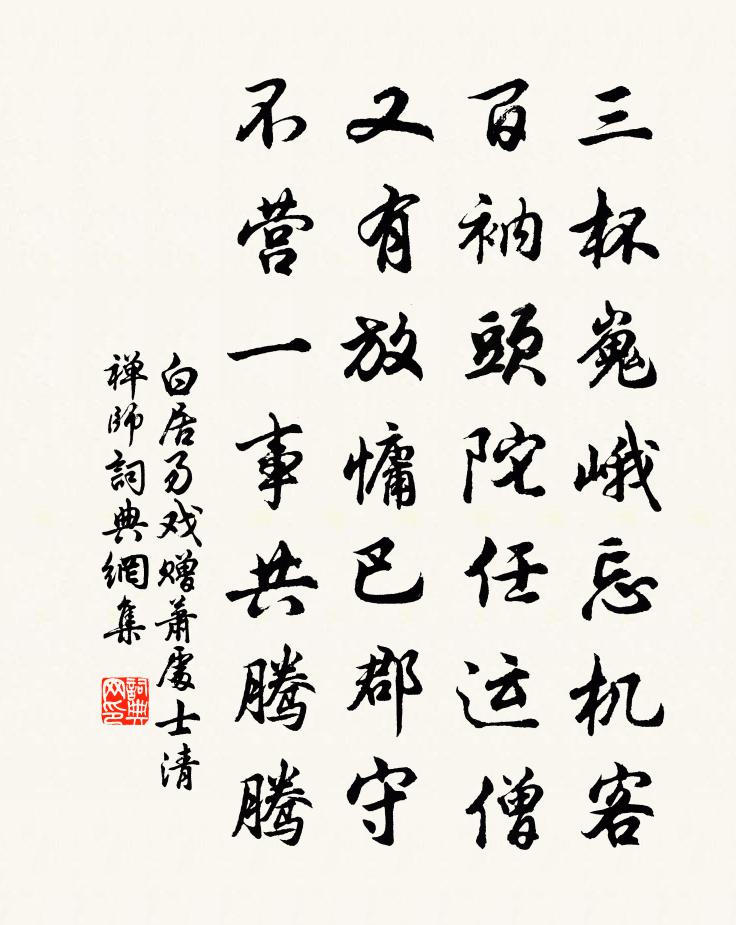 三杯嵬峨忘机客
百衲頭陀任运僧
又有放慵巴郡守
不营一事共腾腾
白居易戏赠萧處士清
禅师詞典網集
詞典网印